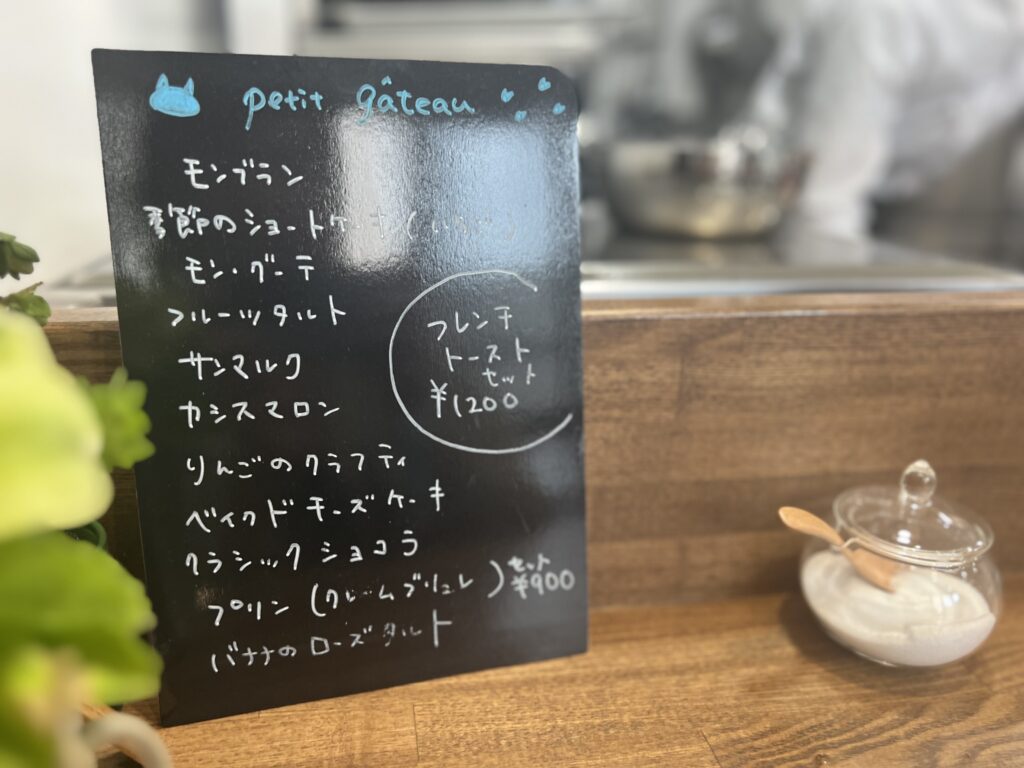 petit gâteau
モンブラン
季節のショートケーキ(いちご)
モン・グーテ
フルーツタルト
サンマルク
カシスマロン
りんごのクラフティ
ベイクドチーズケーキ
クラシックショコラ
プリン(クレームブリュレ)セット¥900
バナナのローズタルト
フレンチ
トースト
セット
¥1200